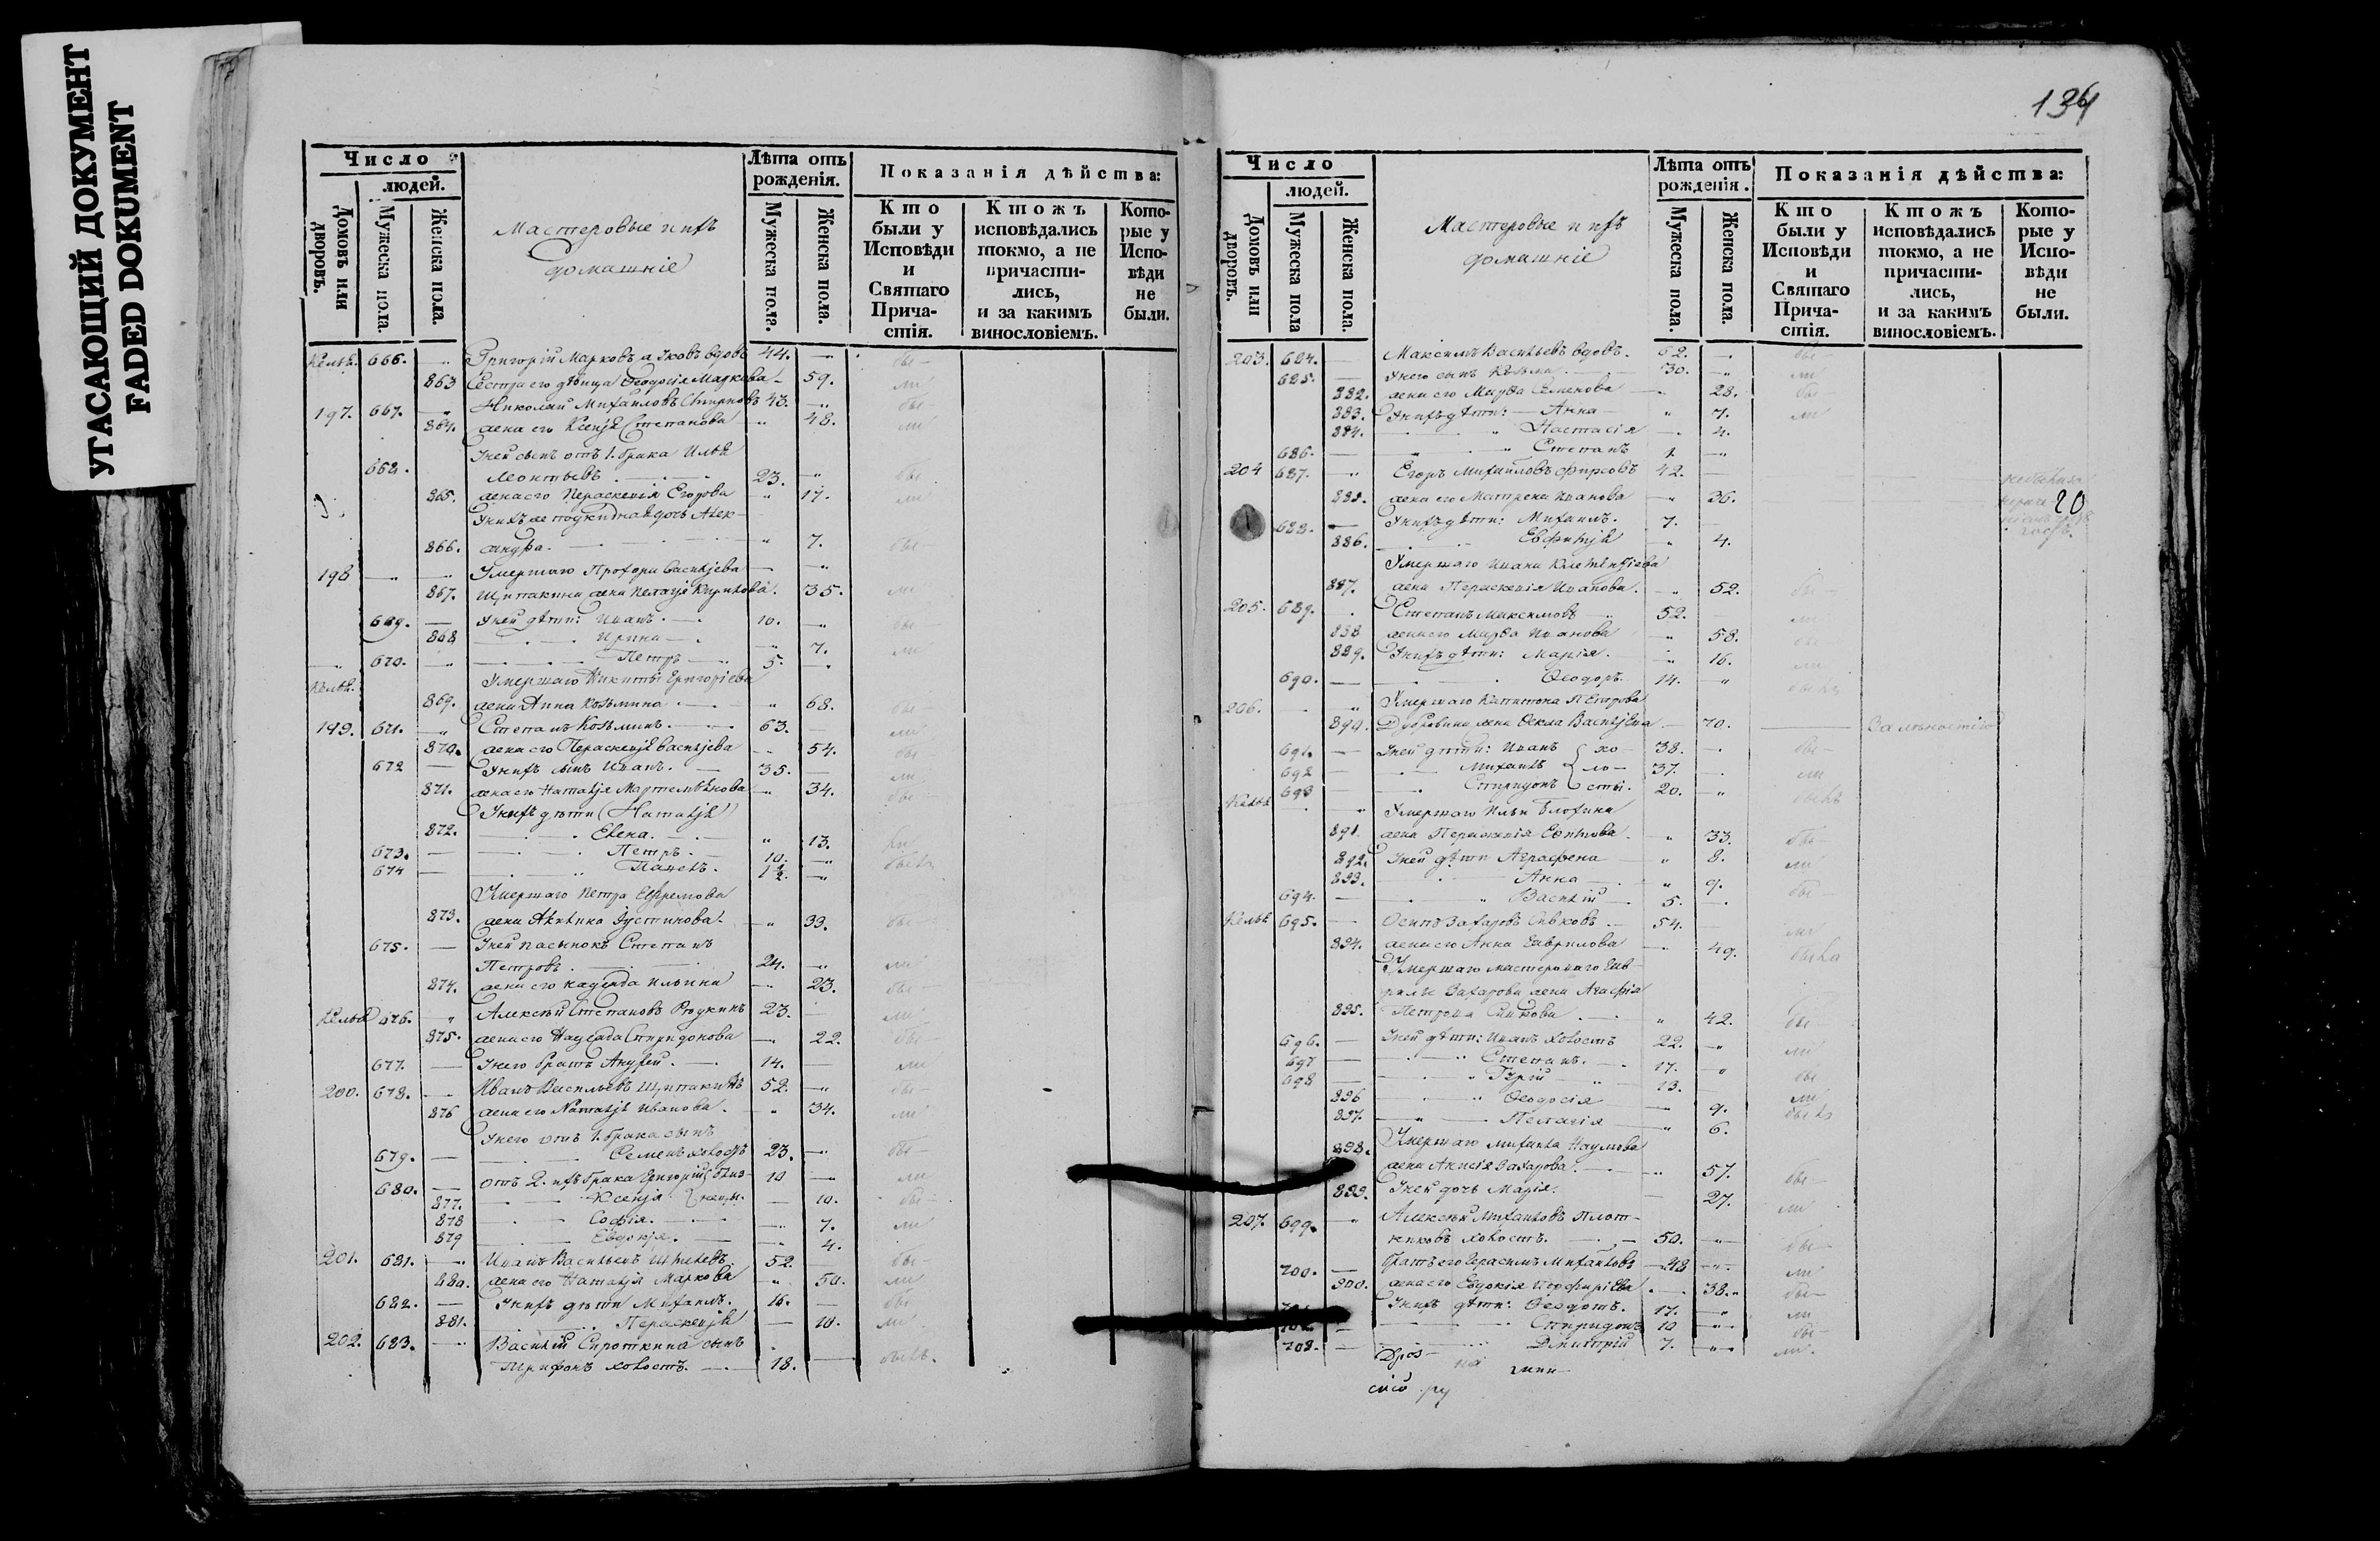 УГАСАЮЩИЙ ДОКУМЕНТ
FADED DOKUMENT
Число
людей.
Домовъ или дворовъ.
Мужеска пола.
Женска пола.
Мастеровые и ихъ
домашніе
Лѣта отъ рожденія.
Мужеска пола.
Женска пола.
Показанія дѣйства:
Кто были у Исповѣди и Святаго Причастія.
Ктожъ исповѣдались токмо, а не причастились, и за какимъ винословіемъ.
Которые у Исповѣди не были.
666. Григорій Марковъ вдовъ 44. бы-
863 Сестра его дѣвица Ѳеодосія Маркова 59. ли
197. 667. Николай Михайловъ 43. бы-
864. жена его Ксенія Степанова 48. ли
У ней сынъ отъ 1. брака Илья
668. Леонтьевъ 23. бы
865. жена его Пераскевія Егорова 17. ли
У нихъ же подкидная дочь Алек-
866. сандра. 7. бы
198 Умершаго Прохора Васильева
867. Щипакина жена Пелагія 35. ли
669. У ней дѣти: Иванъ. 10. бы
868 Ирина 7. ли
670. Петръ 5.
Умершаго Никиты Григоріева
869. жена Анна Козьмина 68. бы
199. 671. Степанъ Козьминъ. 63. ли
870. жена его Пераскевія Васильева 54. бы
672 У нихъ сынъ Иванъ. 35. ли
871. жена его Наталія 34. бы
У нихъ дѣти (Наталія)
872. Елена. 13. ли
673. Петръ. 10. были
674 Павелъ. 1½.
Умершаго Петра Ефремова
873. жена Акилина Іустинова 33. бы
675. У ней пасынокъ Степанъ
Петровъ. 24. ли
874. жена его Надежда Ильина 23. бы
676. Алексѣй Степановъ 23. ли
875. жена его Надежда Спиридонова 22. бы
677. У него братъ Андрей. 14. ли
200. 678. Иванъ Васильевъ Щипакинъ 52. бы
876 жена его Наталія Иванова. 34. ли
У него отъ 1. брака сынъ
679. Семенъ холостъ 23. бы
680. отъ 2. ихъ брака Григорій близ- 10 ли
877. Ксенія нецы. 10. бы
878 Софія. 7. ли
879 Евдокія. 4.
201. 681. Иванъ Васильевъ 52. бы
880. жена его Наталія Маркова 50. ли
682. У нихъ дѣти Михаилъ. 16. бы
881. Пераскевія 10. ли
202. 683. Василій Сироткина сынъ
Трифонъ холостъ. 18. былъ.
134
Число
людей.
Домовъ или дворовъ.
Мужеска пола
Женска пола.
Мастеровые и ихъ
домашніе
Лѣта отъ рожденія.
Мужеска пола.
Женска пола.
Показанія дѣйства:
Кто были у Исповѣди и Святаго Причастія.
Ктожъ исповѣдались токмо, а не причастились, и за какимъ винословіемъ.
Которые у Исповѣди не были.
203. 684. Максимъ Васильевъ вдовъ. 62. бы
685. У него сынъ Козьма 30. ли
882. жена его Марѳа Семенова 28. бы
883. У нихъ дѣти: Анна 7. ли
884. Настасія 4.
686. Степанъ 1
204 687. Егоръ Михайловъ Фирсовъ 42.
885. жена его Матрена Иванова 36.
20
688. У нихъ дѣти: Михаилъ. 7.
886. 4.
Умершаго Ивана
887. жена Пераскевія Иванова. 52. бы
205. 689. Степанъ Максимовъ 52. ли
888 жена его Марѳа Иванова 58. бы
889. У нихъ дѣти: Марія. 16. ли
690. Ѳеодоръ. 14. были
206. Умершаго Капитона Петрова
890. Дубровина жена Ѳекла Васильева 70. За
691. У ней дѣти: Иванъ хо- 38. бы-
692 Михаилъ ло- 37. ли
693 Спиридонъ сты. 20. былъ
Умершаго Ильи Блохина
891. жена Пераскевія 33. бы-
892. У ней дѣти Аграфена 8. ли
893. Анна 9. бы
694. Василій 5.
695. Осипъ Захаровъ Сивковъ 54. ли
894. жена его Анна Гаврилова 49. была
Умершаго мастероваго Гав-
рилы Захарова жена Агафія
895. Петрова Сивкова 42. бы
696. У ней дѣти: Иванъ холостъ 22. ли
697 Степанъ. 17. бы
698 Гурій 13. ли
896 Ѳеодосія 9. были
897. Пелагія 6.
898. Умершаго Михаила Наумова
жена Анисія Захарова. 57. бы-
899. У ней дочь Марія. 27. ли
207. 699. Алексѣй Михайловъ Плот-
никовъ холостъ. 50. бы
700. Братъ его Герасимъ Михайловъ 48 ли
900. жена его Евдокія Порфиріева 38. бы-
У нихъ дѣти: Ѳеодотъ. 17. ли
702 Спиридонъ 10 бы-
703. Дмитрій 7. ли.